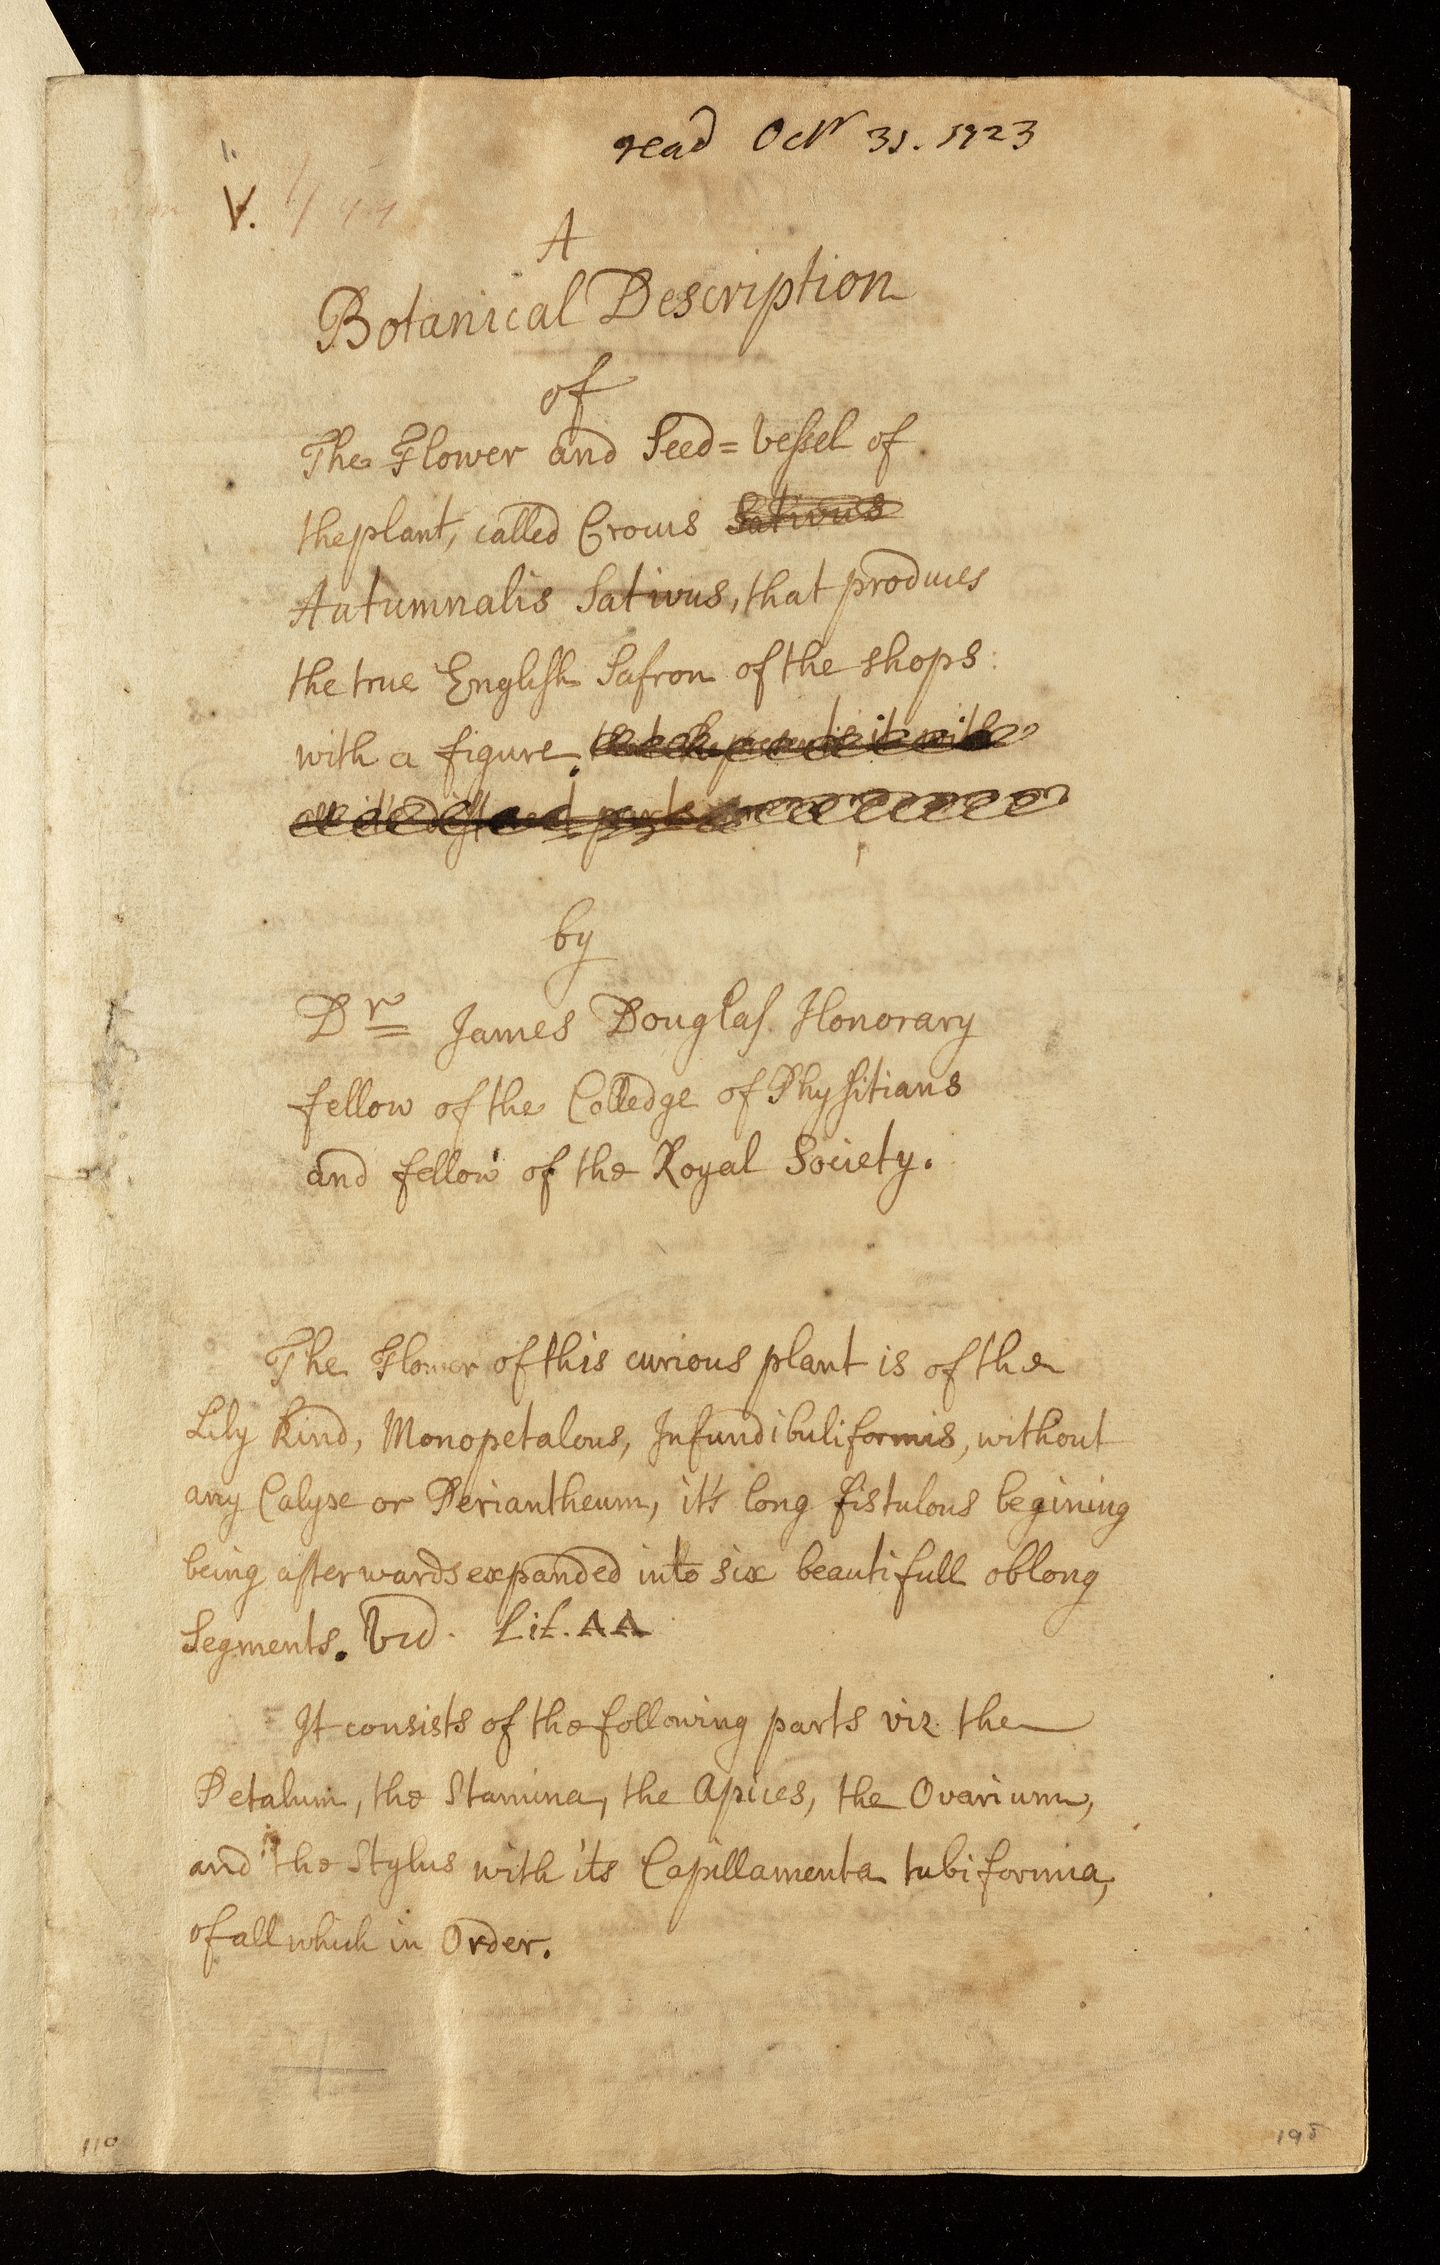 read Octr 31. 1723
1.
V.
A
Botanical Description
of
The Flower and Seed=Vessel of
the plant, called Crocus Sativus
Autumnalis Sativus, that produces
the true English Safron of the shops:
with a figure.
by
Dr James Douglass Honorary
fellow of the Colledge of Physitians
and fellow of the Royal Society.
The Flower of this curious plant is of the
Lily Kind, Monopetalous, Infundibuliformis, without
any Calyx or Periantheum, it's long fistulous begining
being afterwards expanded into six beautifull oblong
Segments. Vid. Lit. AA
It consists of the following parts viz. the
Petalum, the Stamina, the Apices, the Ovarium,
and the Stylus with its Capillamenta tubiformia,
of all which in Order.
110
198